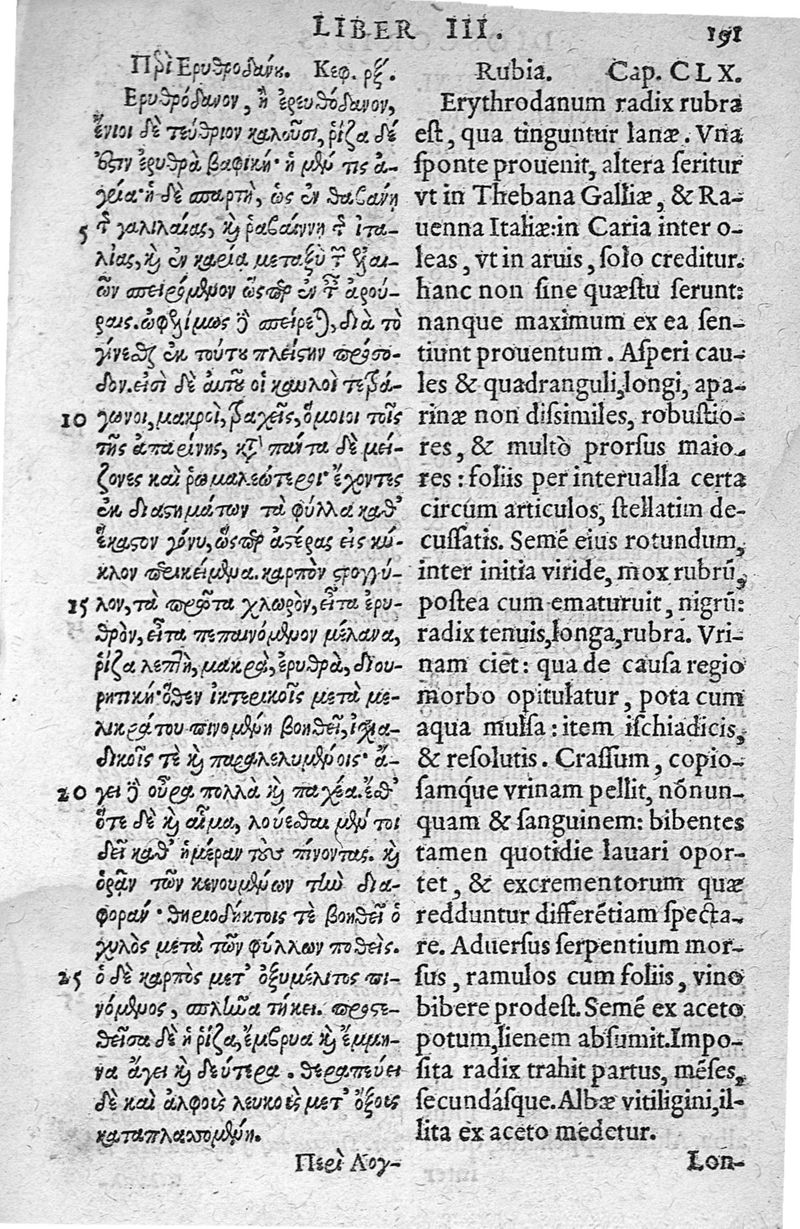 LIBER III.
191
Περὶ Ερυθροδάνȣ. Κεφ. ρξ.
Ερυθρόδανον, ἢ ἐρευθόδανον,
ἔνιοι δὲ τεύθριον καλοῦσι, ῥίζα δέ
ἐστιν ἐρυθρὰ βαφική· ἡ μέν τις ἀ-
γρία· ἡ δὲ σπαρτὴ, ὡς ἐν θαβανῃ
5 τῆς γαλιλαίας, κ̀ ῥαβαίννη τῆς ἰτα-
λίας, κ̀ ἐν καρία μεταξὺ τῶν ἐλαι-
ῶν σπειρόμενον ὥσπερ ἐν ταῖς ἀρού-
ραις. ὠφελίμως δὲ σπείρεται, διὰ τὸ
γίνεσθαι ἐκ τούτου πλείστην πρόσο-
δον. εἰσὶ δὲ αὐτοῦ οἱ καυλοὶ τετρά-
10 γωνοι, μακροὶ, τραχεῖς, ὅμοιοι τοῖς
τῆς ἀπαρίνης, κατὰ πάντα δὲ μεί-
ζονες καὶ ῥωμαλεώτεροι· ἔχοντες
ἐκ διαστημάτων τὰ φύλλα καθ᾽
ἕκαστον γόνυ, ὥσπερ ἀστέρας εἰς κύ-
κλον περικείμενα. καρπὸν στρογγύ-
15 λον, τὰ πρῶτα χλωρὸν, εἶτα ἐρυ-
θρὸν, εἶτα πεπαινόμενον μέλανα,
ῥίζα λεπτὴ, μακρὰ, ἐρυθρὰ, διου-
ρητική· ὅθεν ἰκτερικοῖς μετὰ με-
λικράτου πινομένη βοηθεῖ, ἰσχια-
δικοῖς τὲ κ̀ παραλελυμένοις· ἄ-
20 γει δὲ οὖρα πολλὰ κ̀ παχέα. ἔσθ᾽
ὅτε δὲ κ̀ αἷμα, λούεσθαι μέν τοι
δεῖ καθ᾽ ἡμέραν τοὺς πίνοντας. κ̀
ὁρᾷν τῶν κενουμένων τὴν δια-
φοράν· θηριοδήκτοις τὲ βοηθεῖ ὁ
χυλὸς μετὰ τῶν φύλλων ποθείς.
25 ὁ δὲ καρπὸς μετ᾽ ὀξυμέλιτος πι-
νόμενος, σπλῆνα τήκει. προστε-
θεῖσα δὲ ἡ ῥίζα, ἔμβρυα κ̀ ἔμμη-
να ἄγει κ̀ δεύτερα. θεραπεύει
δὲ καὶ ἀλφοὺς λευκοὺς μετ᾽ ὄξους
καταπλασσομένη.
Περὶ Λογ-
Rubia. Cap. CLX.
Erythrodanum radix rubra
est, qua tinguntur lanæ. Vna
sponte prouenit, altera seritur
vt in Thebana Galliæ, & Ra-
uenna Italiæ: in Caria inter o-
leas, vt in aruis, solo creditur.
hanc non sine quæstu serunt:
nanque maximum ex ea sen-
tiunt prouentum. Asperi cau-
les & quadranguli, longi, apa-
rinæ non dissimiles, robustio-
res, & multò prorsus maio-
res: foliis per interualla certa
circum articulos, stellatim de-
cussatis. Semẽ eius rotundum,
inter initia viride, mox rubrũ,
postea cum ematuruit, nigrũ:
radix tenuis, longa, rubra. Vri-
nam ciet: qua de causa regio
morbo opitulatur, pota cum
aqua mulsa: item ischiadicis,
& resolutis. Crassum, copio-
samq́ue vrinam pellit, nõnun-
quam & sanguinem: bibentes
tamen quotidie lauari opor-
tet, & excrementorum quæ
redduntur differẽtiam specta-
re. Aduersus serpentium mor-
sus, ramulos cum foliis, vino
bibere prodest. Semẽ ex aceto
potum, lienem absumit. Impo-
sita radix trahit partus, mẽses,
secundásque. Albæ vitiligini, il-
lita ex aceto medetur.
Lon-